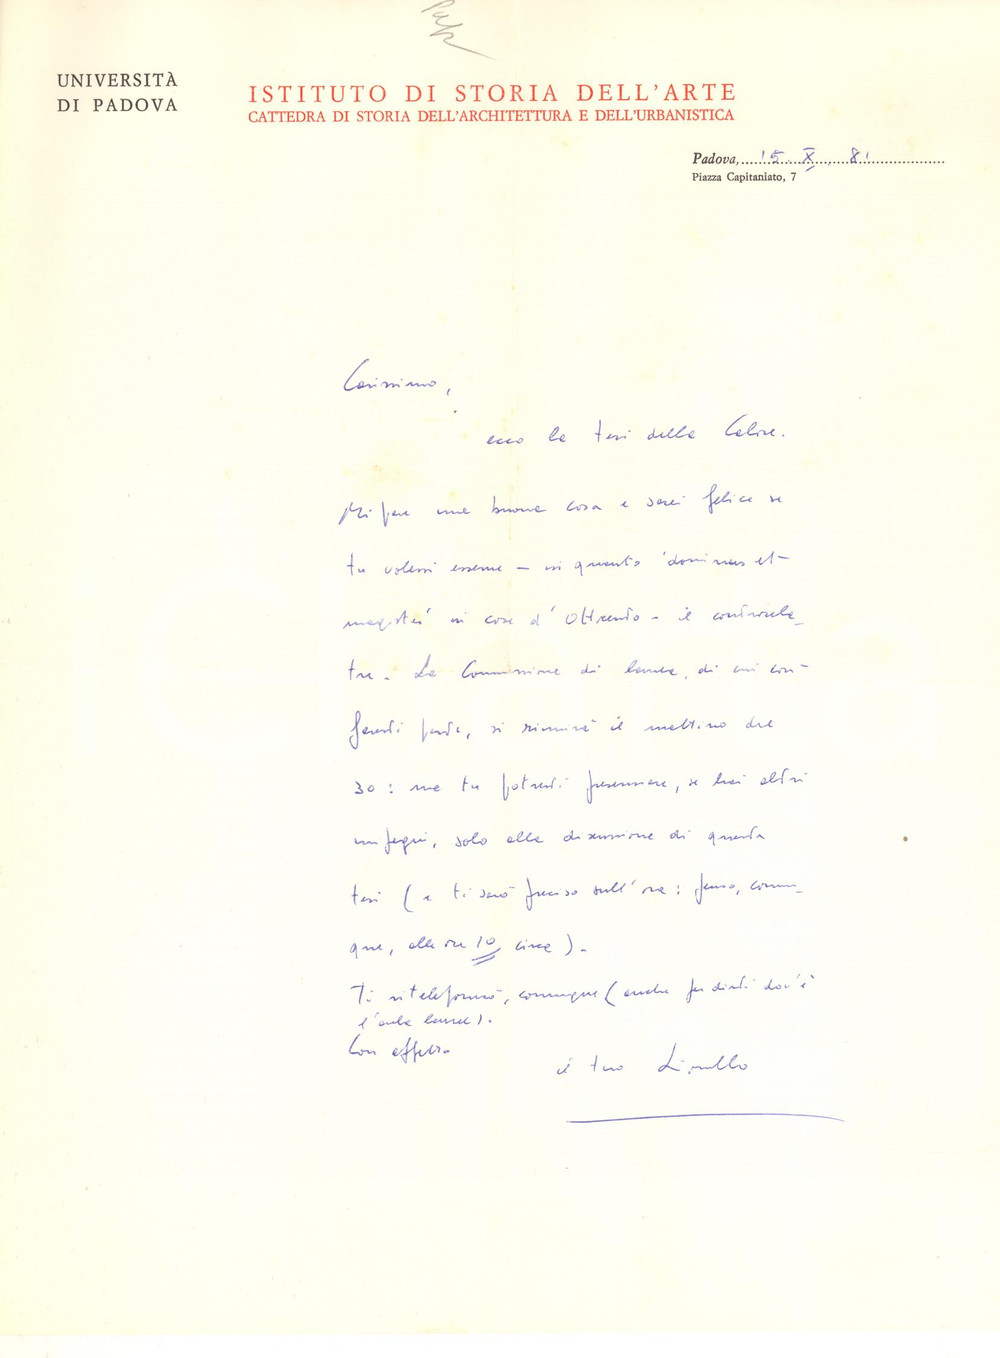 UNIVERSITÀ
DI PADOVA
ISTITUTO DI STORIA DELL'ARTE
CATTEDRA DI STORIA DELL'ARCHITETTURA E DELL'URBANISTICA
Padova, 15. X. 81
Piazza Capitaniato, 7
Carissimo,
ecco la tesi della Calore.
Mi pare una buona cosa e sarei felice se
tu volessi esserne – in quanto 'dominus et
magister' in cose d'Ottocento – il controrela-
tore. La Commissione di laurea, di cui con-
faresti parte, si riunirà il mattino del
30: ma tu potresti presenziare, se hai altri
impegni, solo alla discussione di questa
tesi (e ti sarò preciso sull'ora: penso, comun-
que, alle ore 10 circa).
Ti ritelefonerò, comunque (anche per dirti dov'è
l'aula laurea).
Con affetto
il tuo Lionello